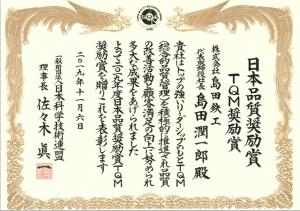 日本品質奨励賞
TQM奨励賞
株式会社 島田鉄工
代表取締役社長 島田潤一郎 殿
貴社はトップの強いリーダーシップのもとTQM
(総合的品質管理)を積極的に推進され品質
の改善活動と顧客満足の向上に努められ
多大な成果をあげられました
よって二〇一九年度日本品質奨励賞TQM
奨励賞を贈りこれを表彰します
二〇一九年十一月六日
一般財団法人 日本科学技術連盟
理事長 佐々木眞一